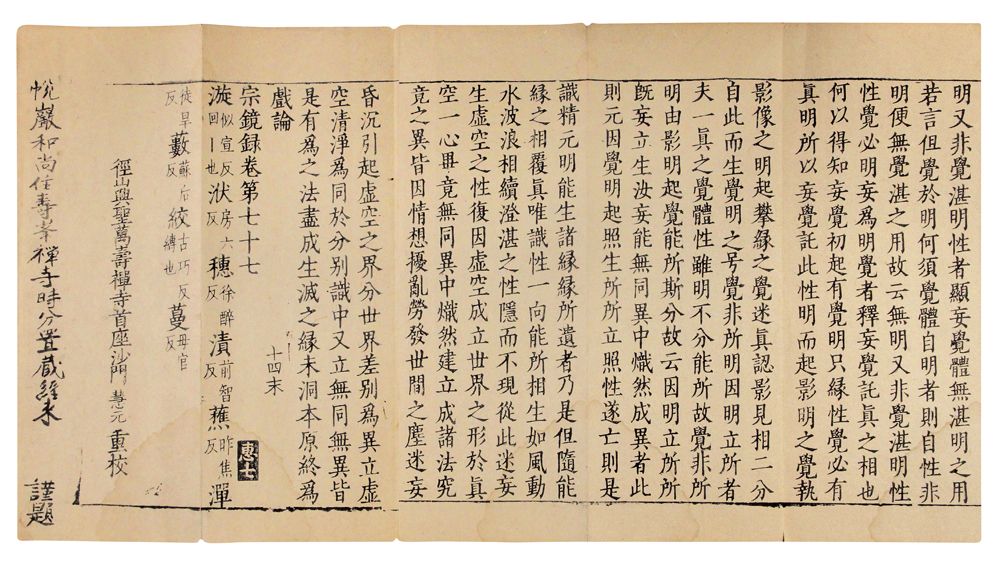 明又非覺湛明性者顯妄覺體無湛明之用
若言但覺於明何須覺體自明者則自性非
明便無覺湛之用故云無明又非覺湛明性
性覺必明妄為明覺者釋妄覺託真之相也
何以得知妄覺初起有覺明只緣性覺必有
真明所以妄覺託此性明而起影明之覺執
影像之明起攀緣之覺迷真認影見相二分
自此而生覺明之号覺非所明因明立所者
夫一真之覺體性雖明不分能所故覺非所
明由影明起覺能所斯分故云因明立所所
既妄立生汝妄能無同異中熾然成異者此
則元因覺明起照生所所立照性遂亡則是
識精元明能生諸緣緣所遺者乃是但隨能
緣之相覆真唯識性一向能所相生如風動
水波浪相續澄湛之性隱而不現從此迷妄
生虛空之性復因虛空成立世界之形於真
空一心畢竟無同異中熾然建立成諸法究
竟之異皆因情想擾亂勞發世間之塵迷妄
昏沉引起虛空之界分世界差別為異立虛
空清淨為同於分別識中又立無同無異皆
是有為之法盡成生滅之緣未洞本原終為
戲論
十四末
宗鏡録卷第七十七
惠士
漩似宣反回丨也洑房六反穗徐醉反漬前智反蕉昨焦反潬
徒旱反藪蘇后反絞古巧反縛也蔓毋官反
徑山興聖萬壽禪寺首座沙門慧元重校
悅巖和尚住壽峯禪寺時分置藏經永
謹題